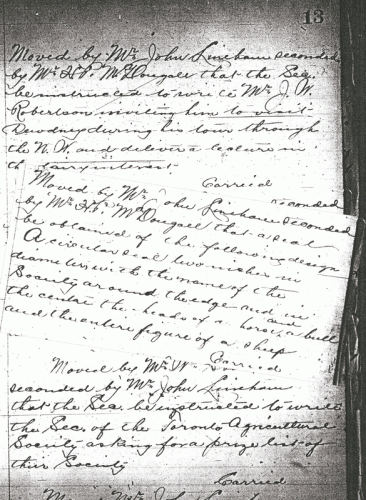 13
Moved by Mr. John Lineham seconded
by Mr. McDougall that the Sec.
be instructed to write Mr. J. W.
Robertson inviting him to visit
Dewdney during his tour through
the N. W. and deliver a lecture in
interest
Carried
seconded
Moved by Mr. John Lineham seconded
by Mr. McDougall that a seal
be obtained of the following design
A circular seal two inches in
diameter with the name of the
Society around the edge and in
the centre the heads of a horse, a bull and
and the entire figure of a sheep
Carried
Moved by Mr. W.
seconded by Mr. John Lineham
that the Sec. be instructed to write
the Sec. of the Toronto Agricultural
Society asking for a prize list of
their Society
Carried